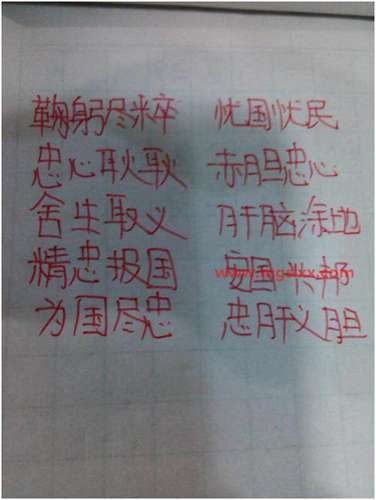 鞠躬尽粹 忧国忧民
忠心耿耿 赤胆忠心
舍生取义 肝脑涂地
精忠报国 国兴邦
为国尽忠 忠肝义胆